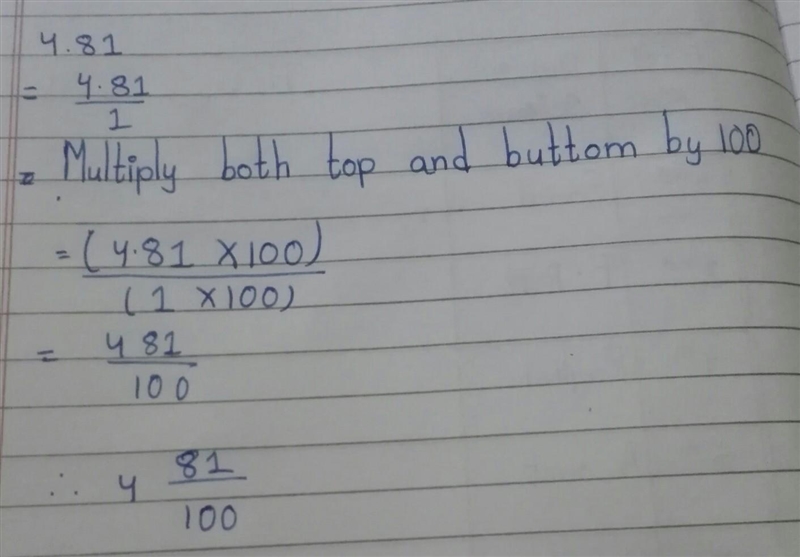 4.81
= 4.81
1
= Multiply both top and buttom by 100
= (4.81 × 100)
(1 × 100)
= 481
100
∴ 4 81
100